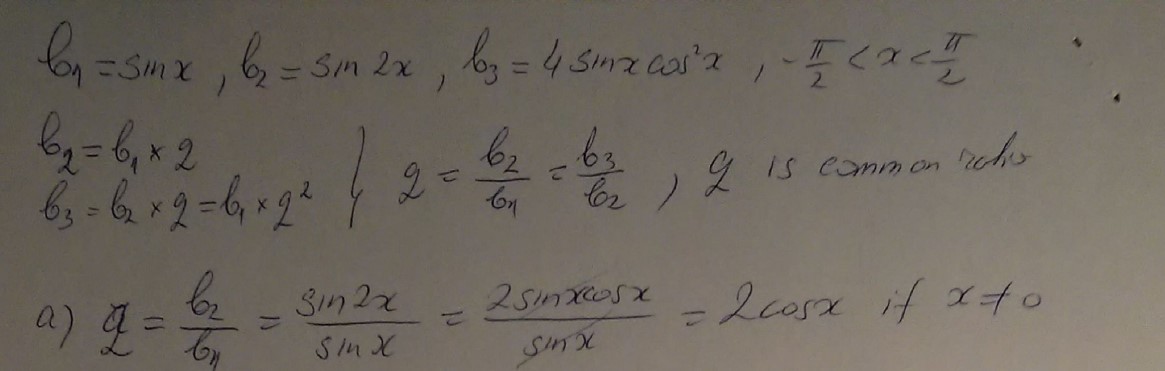 b₁ = sinx, b₂ = sin 2x, b₃ = 4 sinx cos²x, -π/2 < x < π/2
b₂ = b₁ × q
b₃ = b₂ × q = b₁ × q² | q = b₂/b₁ = b₃/b₂, q is common ratio
a) q = b₂/b₁ = sin2x/sinx = 2sinxcosx/sinx = 2cosx if x ≠ 0